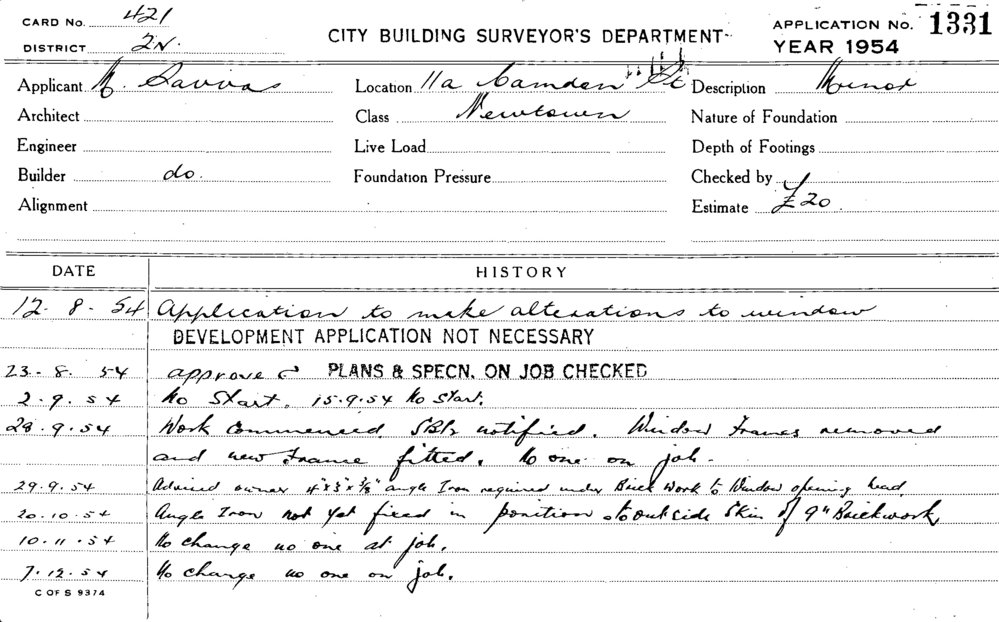 CARD No. 421
DISTRICT 2N.
CITY BUILDING SURVEYOR'S DEPARTMENT
APPLICATION No. 1331
YEAR 1954
Applicant M. Savvas Location 11a Camden St Description Minor
Architect Class Newtown Nature of Foundation
Engineer Live Load Depth of Footings
Builder do. Foundation Pressure Checked by
Alignment Estimate £20.
DATE HISTORY
12. 8. 54 Application to make alterations to window
DEVELOPMENT APPLICATION NOT NECESSARY
23. 8. 54 approved PLANS & SPECN. ON JOB CHECKED
2. 9. 54 No Start. 15.9.54 No Start.
28. 9. 54 Work Commenced. notified. Window Frames removed
and new Frame fitted. No one on job.
29. 9. 54 Advised owner 4" x 3" x 3/8" angle Iron required under Brick work to Window opening head.
20. 10. 54 Angle Iron not yet fixed in position to outside Skin of 9" Brickwork
10. 11. 54 No change no one at job.
7. 12. 54 No change no one on job.
C OF S 9374